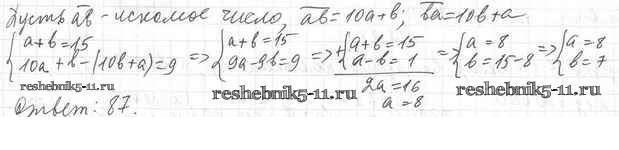 Пусть a̅b̅ - искомое число, a̅b̅ = 10a + b; b̅a̅ = 10b + a
{a + b = 15 => {a + b = 15 => + {a + b = 15 => {a = 8 => {a = 8
{10a + b - (10b + a) = 9 {9a - 9b = 9 {a - b = 1 {b = 15 - 8 {b = 7
2a = 16
a = 8
reshebnik5-11.ru reshebnik5-11.ru reshebnik5-11.ru
Ответ: 87.